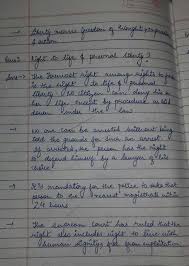 → liberty means freedom of thought, expression
& action
Ques: Right to life & personal liberty?
Ans→ The foremost right among rights to free
is the right to life & personal
liberty. No citizen can deny his or
her life except by procedure as laid
down under the law
→ No one can be arrested without being
told the grounds for such an arrest.
If arrested, the person has the right
to defend himself by a lawyer of his
choice
→ It is mandatory for the police to take that
person to the nearest magistrate within
24 hours
→ The supreme court has ruled that the
right also includes right to live with
human dignity, free from exploitation